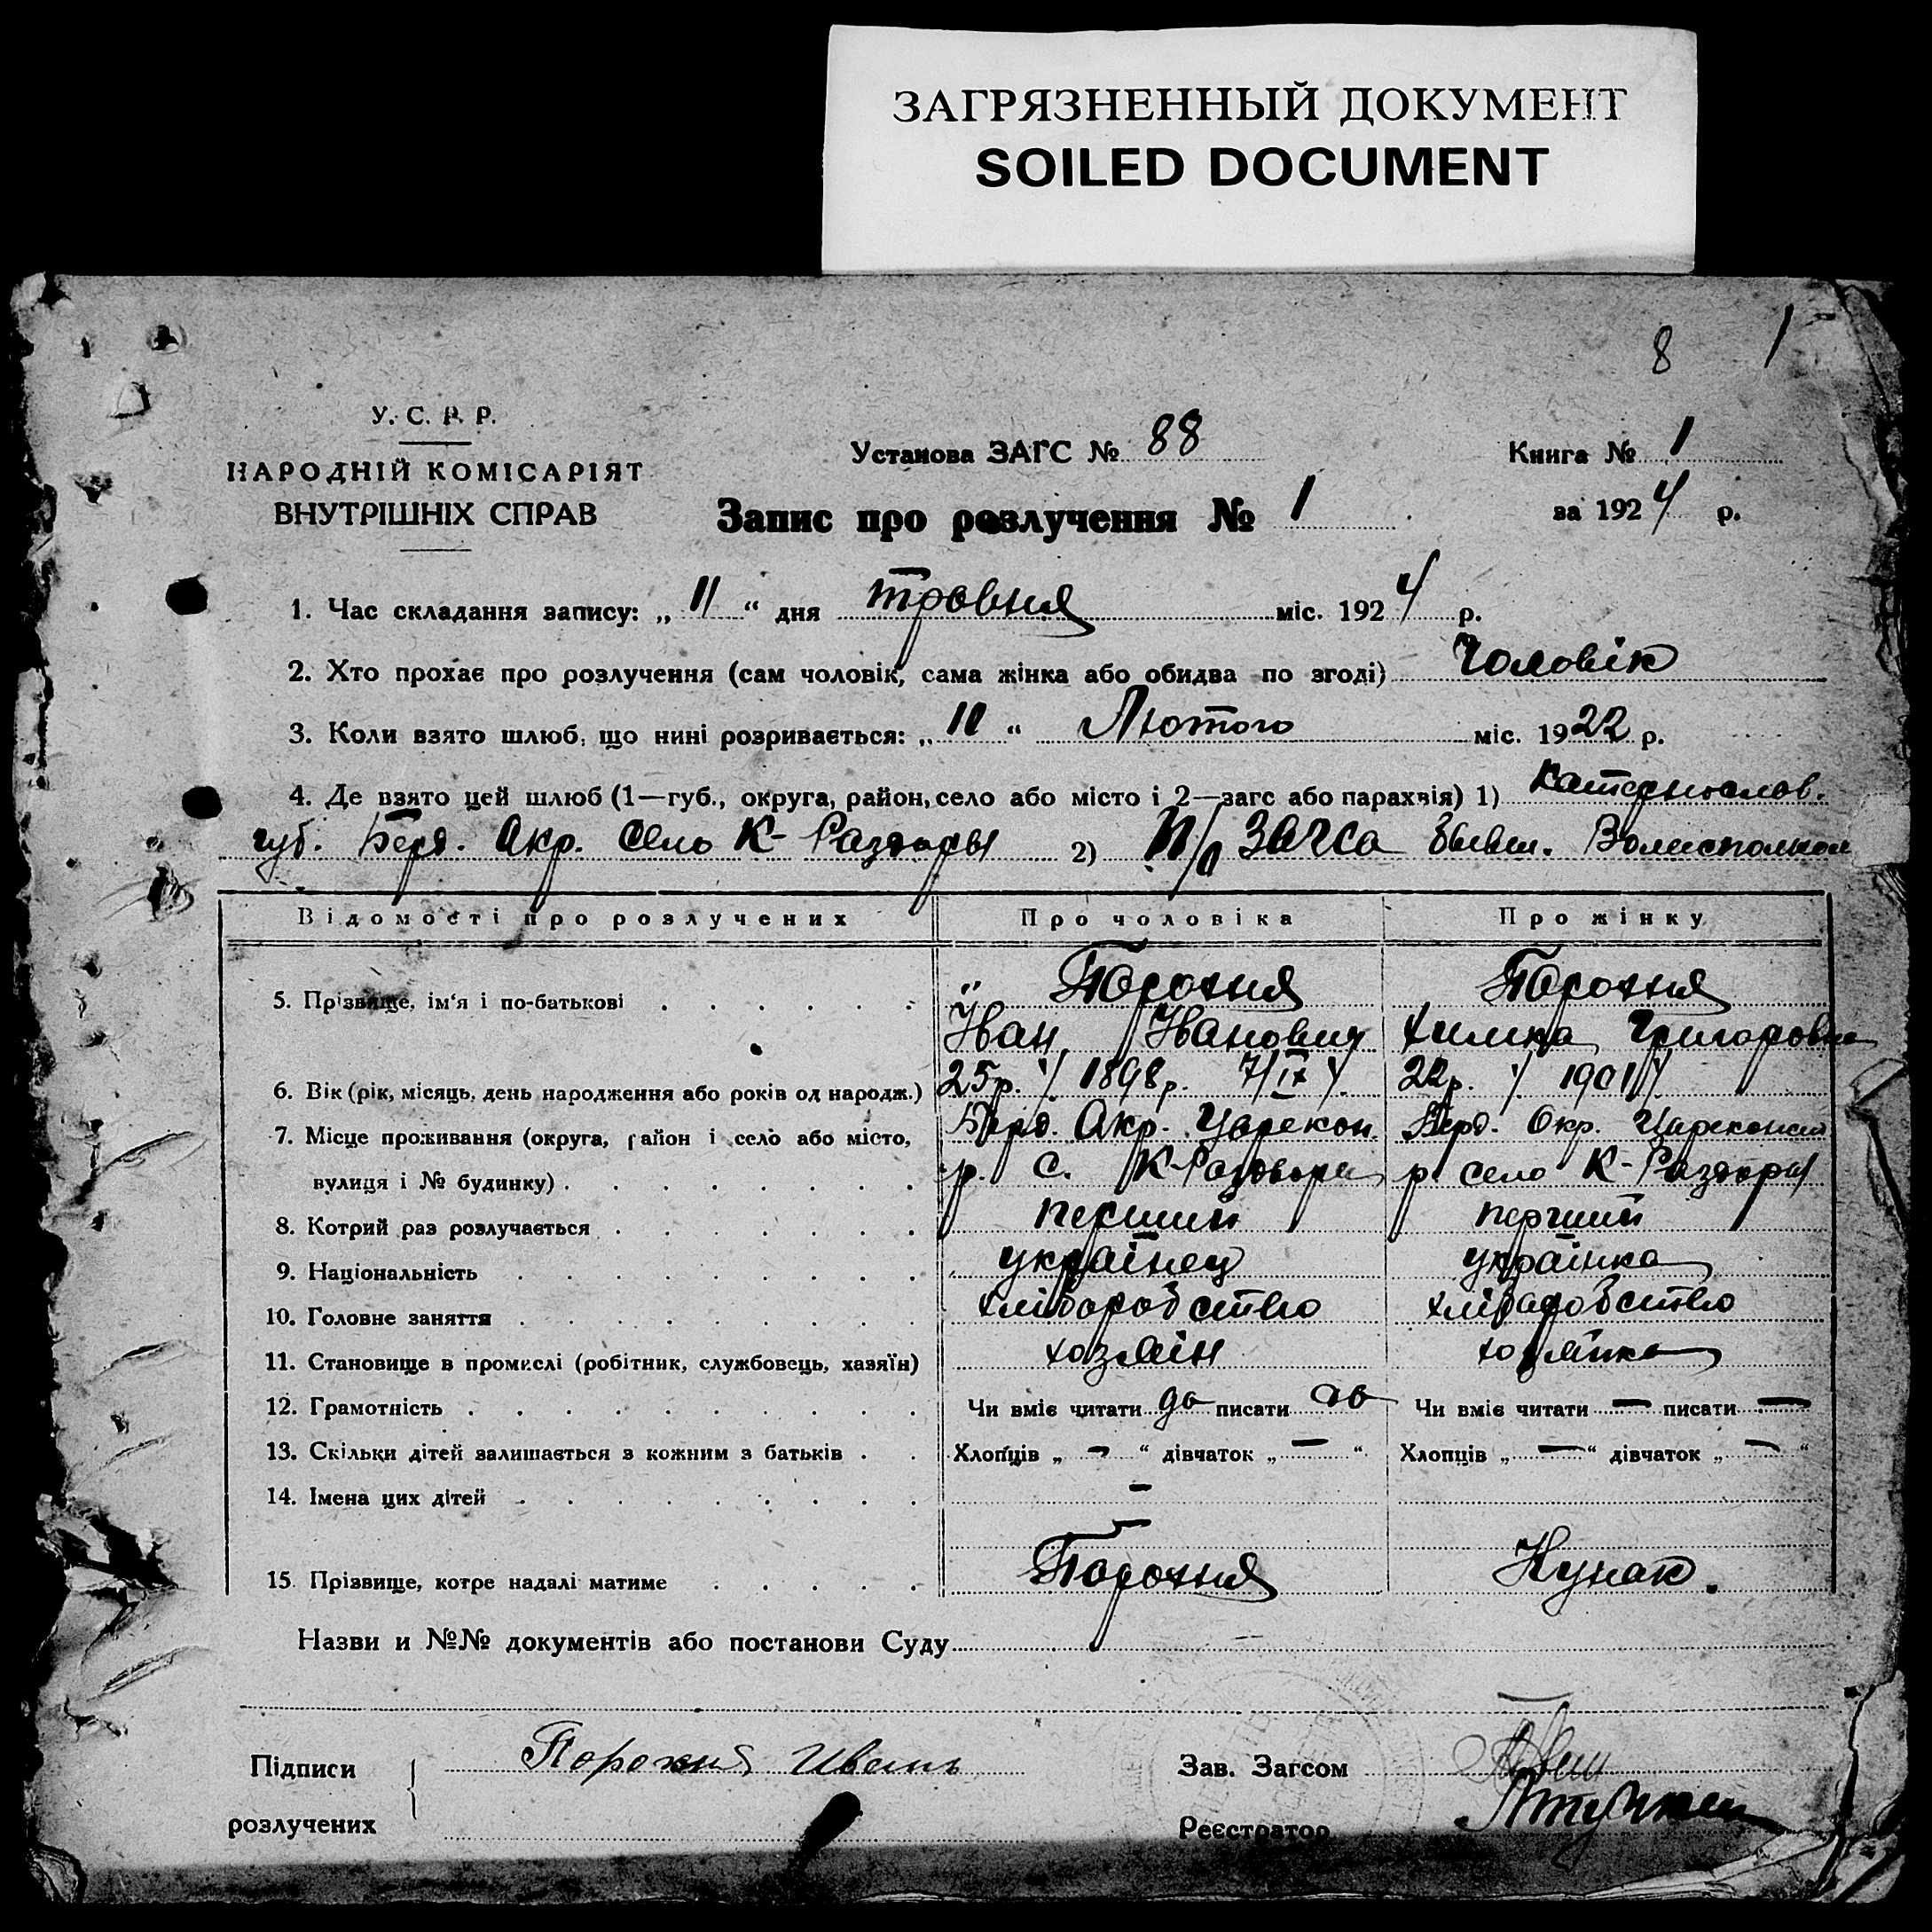 ЗАГРЯЗНЕННЫЙ ДОКУМЕНТ
SOILED DOCUMENT
8 1
У. С. Р. Р.
НАРОДНІЙ КОМІСАРІЯТ
ВНУТРІШНІХ СПРАВ
Установа ЗАГС № 88
Книга № 1
Запис про розлучення № 1
за 1924 р.
1. Час складання запису: „ 11 “ дня травня міс. 1924 р.
2. Хто прохає про розлучення (сам чоловік, сама жінка або обидва по згоді) Чоловік
3. Коли взято шлюб, що нині розривається: „ 10 “ Лютого міс. 1922 р.
4. Де взято цей шлюб (1—губ., округа, район, село або місто і 2—загс або парахвія) 1) Катеринослав.
губ. Берд. Акр. Село К- Раздоры 2) П/о Загса бывш. Волисполком
Відомості про розлучених Про чоловіка Про жінку
5. Прізвище, ім‘я і по-батькові Порожня Порожня
Іван Іванович Химка Григоровна
6. Вік (рік, місяць, день народження або років од народж.) 25р. 1898р. 7/IX 22р. 1901
7. Місце проживання (округа, район і село або місто, Берд. Акр. Царекон. Берд. Окр. Цареконст
вулиця і № будинку) р. С. К-Раздоры р село К-Раздоры
8. Котрий раз розлучається перший перший
9. Національність українец українка
10. Головне заняття хліборобство хліборобство
11. Становище в промислі (робітник, службовець, хазяїн) хозяїн хозяїнка
12. Грамотність Чи вміє читати да писати да Чи вміє читати — писати —
13. Скільки дітей залишається з кожним з батьків Хлопців „ — “ дівчаток „ — “ Хлопців „ — “ дівчаток „ — “
14. Імена цих дітей —
—
15. Прізвище, котре надалі матиме Порожня Кунак.
Назви и №№ документів або постанови Суду —
Підписи Порожня Иван Зав. Загсом
розлучених Реєстратор